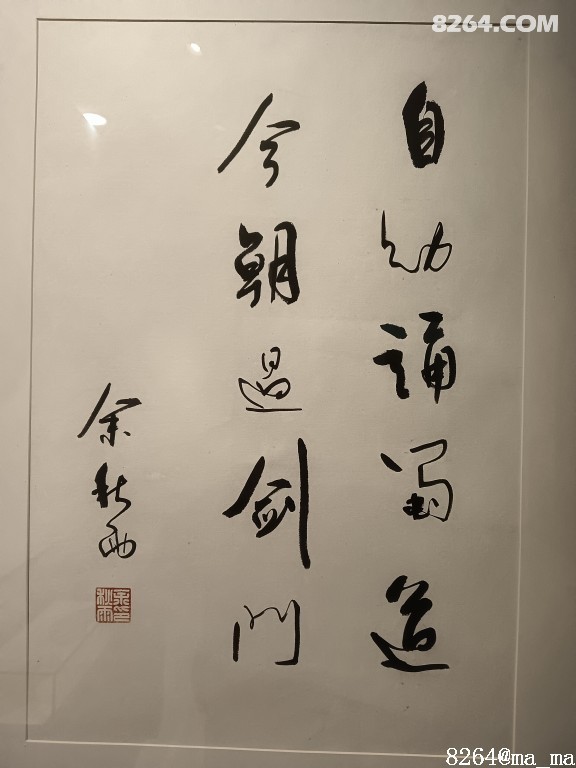 8264.COM
自幼诵蜀道
今朝过剑门
余秋雨
8264@ma_ma